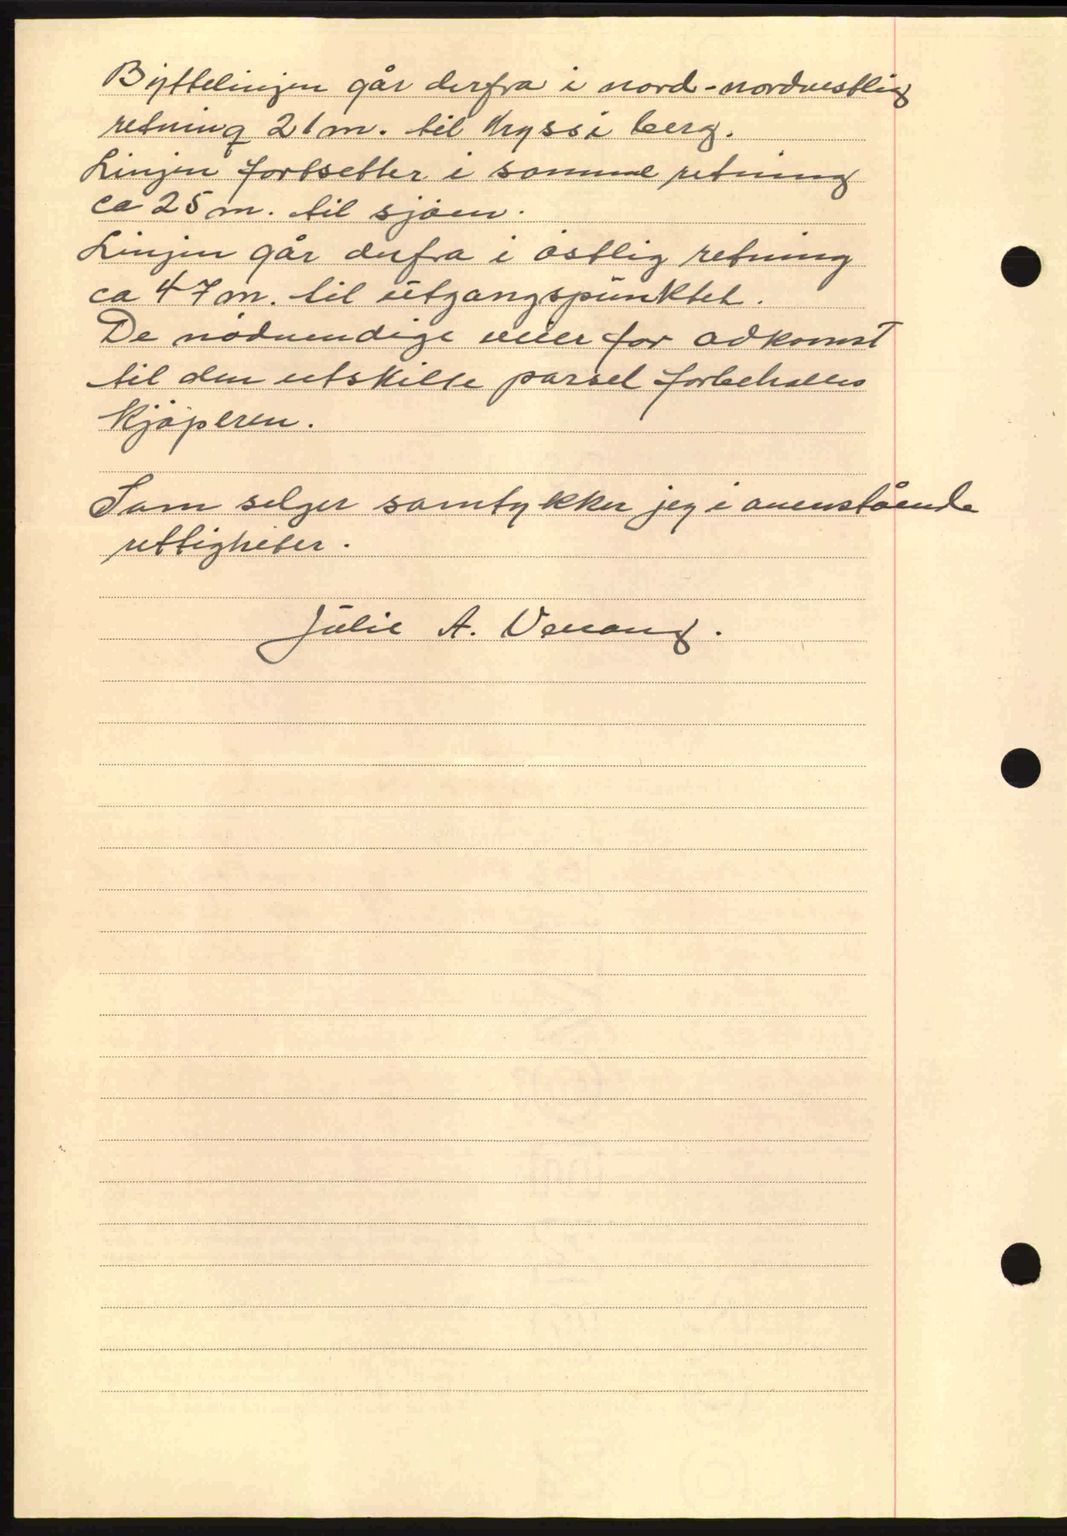 Byttelinjen går derfra i nord-nordvestlig
retning 21m. til kryss i berg.
Linjen fortsetter i samme retning
ca 25m. til sjøen.
Linjen går derfra i østlig retning
ca 47m. til utgangspunktet.
De nødvendige veier for adkomst
til den utskilte parsel forbeholdes
kjøperen.
Som selger samtykker jeg i ovenstående
rettigheter.
Julie A.